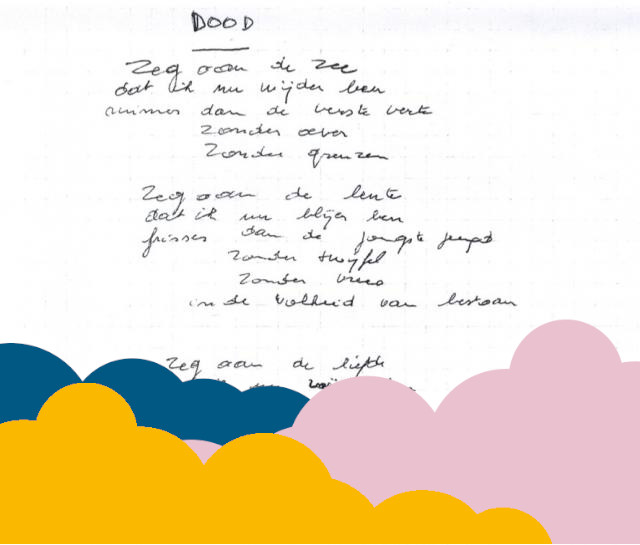 DOOD
Zeg aan de zee
dat ik nu wijder ben
ruimer dan de verste verte
zonder oever
zonder grenzen
Zeg aan de lente
dat ik nu blijer ben
frisser dan de jongste jeugd
zonder twijfel
zonder vrees
in de volheid van bestaan
Zeg aan de liefde